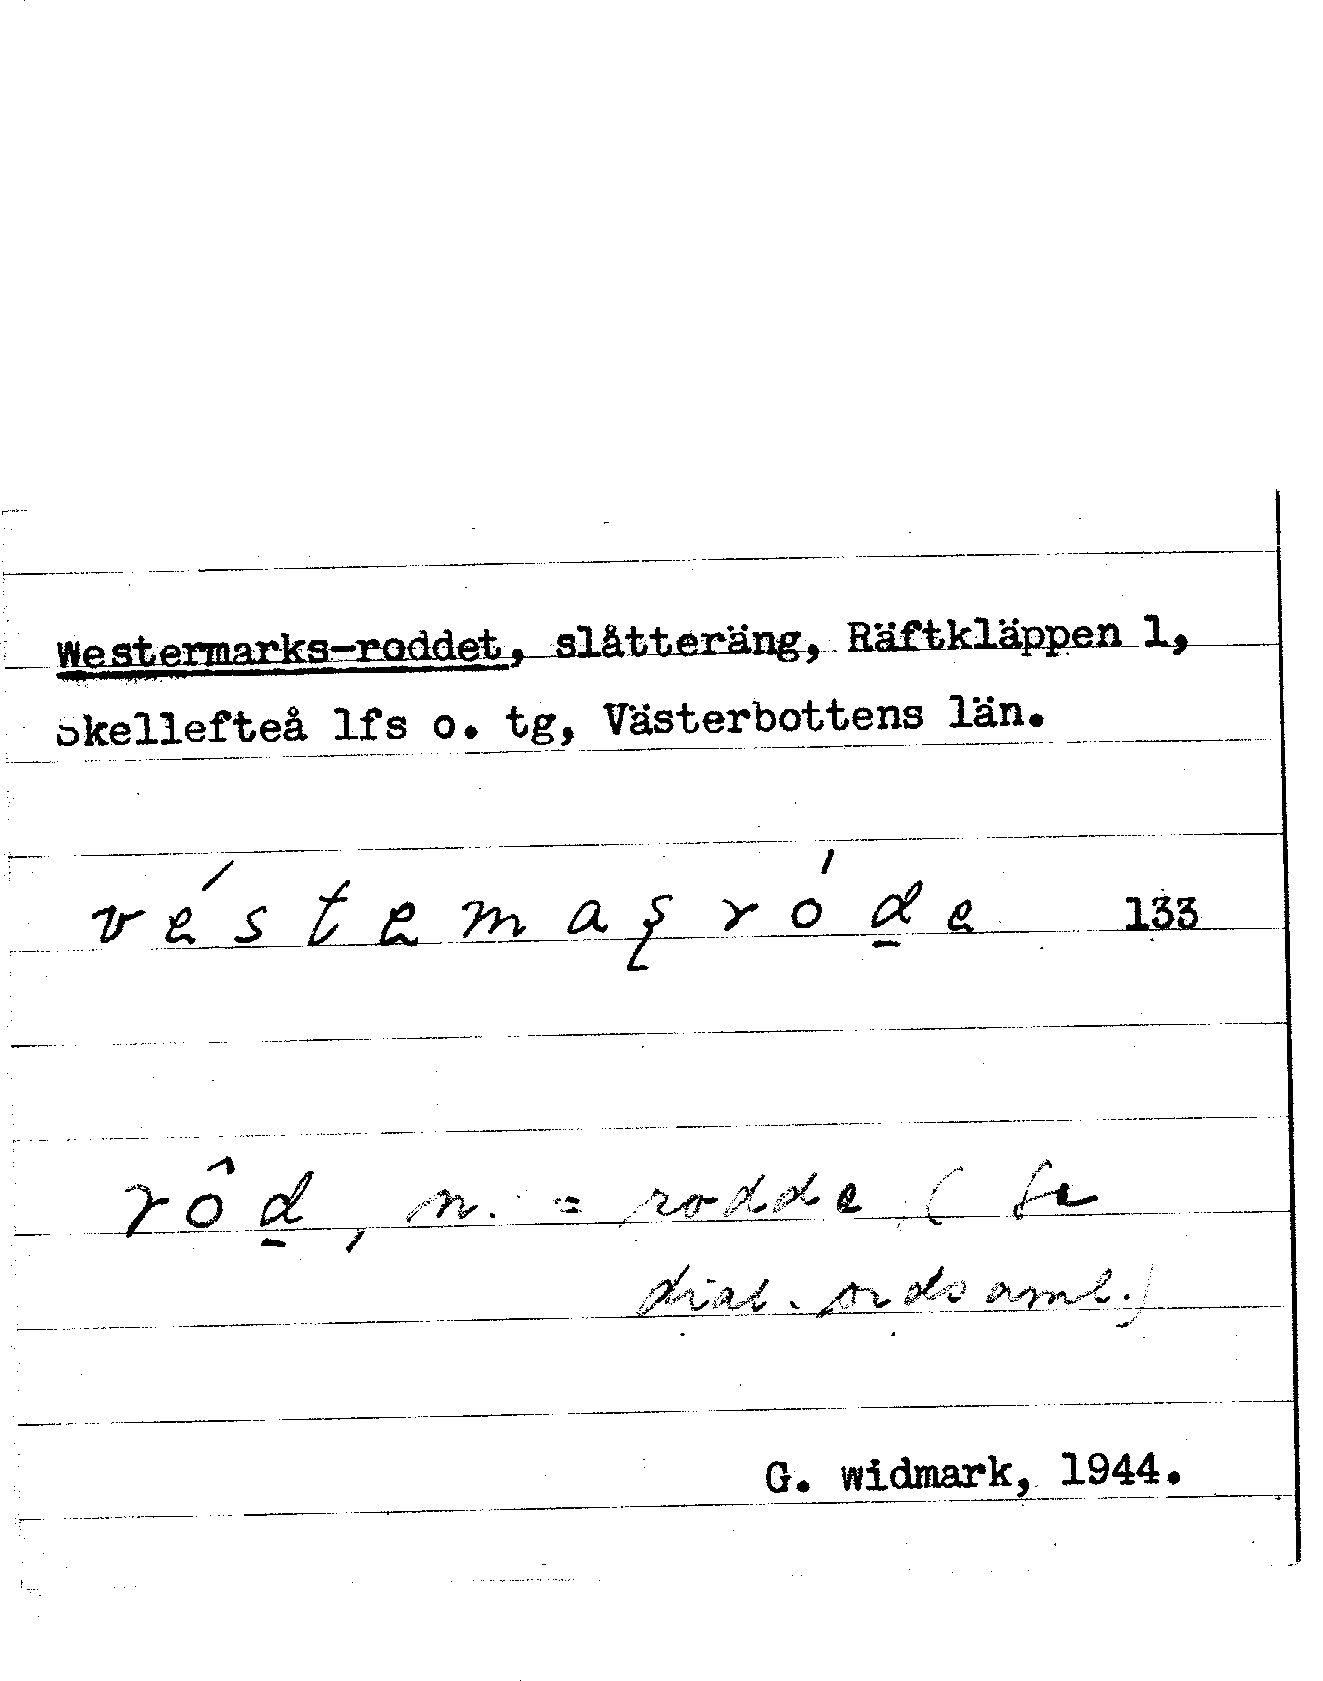 Westermarks-roddet, slåtteräng, Räftkläppen 1,
Skellefteå lfs o. tg, Västerbottens län.
véstemaʂróḏe 133
rôḏ, n. = rodde (Se
dial. ordsaml.)
G. widmark, 1944.